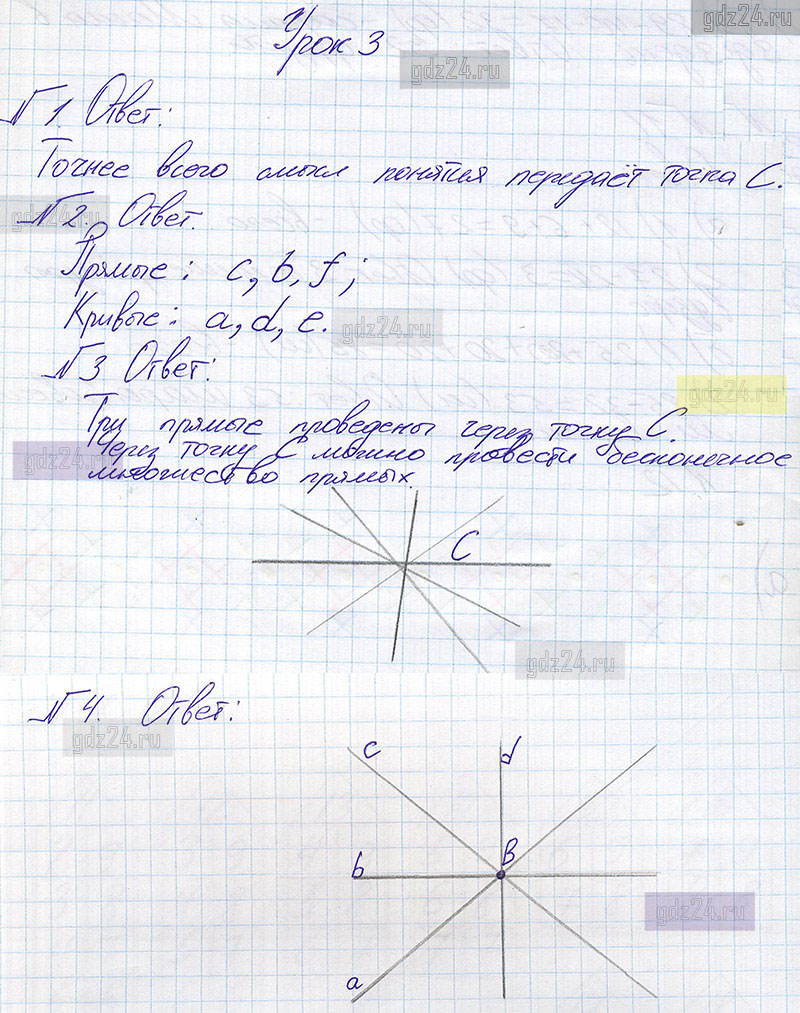 gdz24.ru
Урок 3
gdz24.ru
№ 1. Ответ:
Точнее всего смысл понятия передаёт точка С.
gdz24.ru
№ 2. Ответ.
Прямые: c, b, f;
Кривые: a, d, e.
gdz24.ru
№ 3 Ответ:
gdz24.ru
Три прямые проведены через точку С.
Через точку С можно провести бесконечное
gdz24.ru
множество прямых.
C
gdz24.ru
№ 4. Ответ:
gdz24.ru
c
d
B
b
gdz24.ru
a